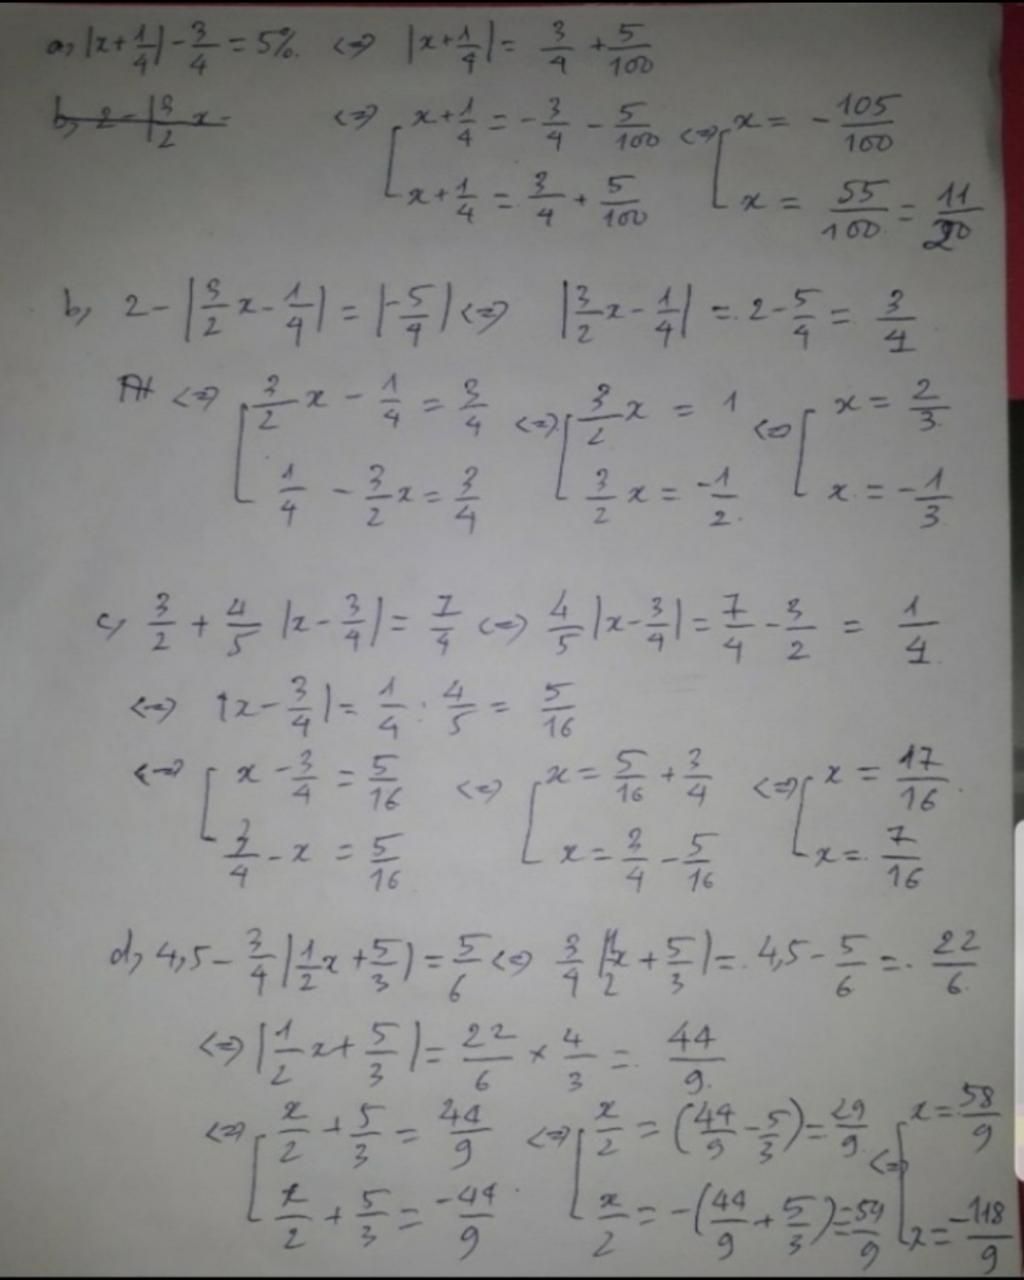 a, |x + 1/4| - 3/4 = 5% <=> |x + 1/4| = 3/4 + 5/100
b, 2 - |3/2 x -
<=> [ x + 1/4 = -3/4 - 5/100 <=> [ x = -105/100
x + 1/4 = 3/4 + 5/100 x = 55/100 = 11/20
b, 2 - |3/2 x - 1/4| = |-5/4| <=> |3/2 x - 1/4| = 2 - 5/4 = 3/4
<=> [ 3/2 x - 1/4 = 3/4 <=> [ 3/2 x = 1 <=> [ x = 2/3
1/4 - 3/2 x = 3/4 3/2 x = -1/2 x = -1/3
c, 3/2 + 4/5 |x - 3/4| = 7/4 <=> 4/5 |x - 3/4| = 7/4 - 3/2 = 1/4
<=> |x - 3/4| = 1/4 : 4/5 = 5/16
<=> [ x - 3/4 = 5/16 <=> [ x = 5/16 + 3/4 <=> [ x = 17/16
3/4 - x = 5/16 x = 3/4 - 5/16 x = 7/16
d, 4,5 - 3/4 |1/2 x + 5/3| = 5/6 <=> 3/4 |1/2 x + 5/3| = 4,5 - 5/6 = 22/6
<=> |1/2 x + 5/3| = 22/6 × 4/3 = 44/9
<=> [ x/2 + 5/3 = 44/9 <=> [ x/2 = (44/9 - 5/3) = 29/9 <=> [ x = 58/9
x/2 + 5/3 = -44/9 x/2 = -(44/9 + 5/3) = 59/9 x = -118/9